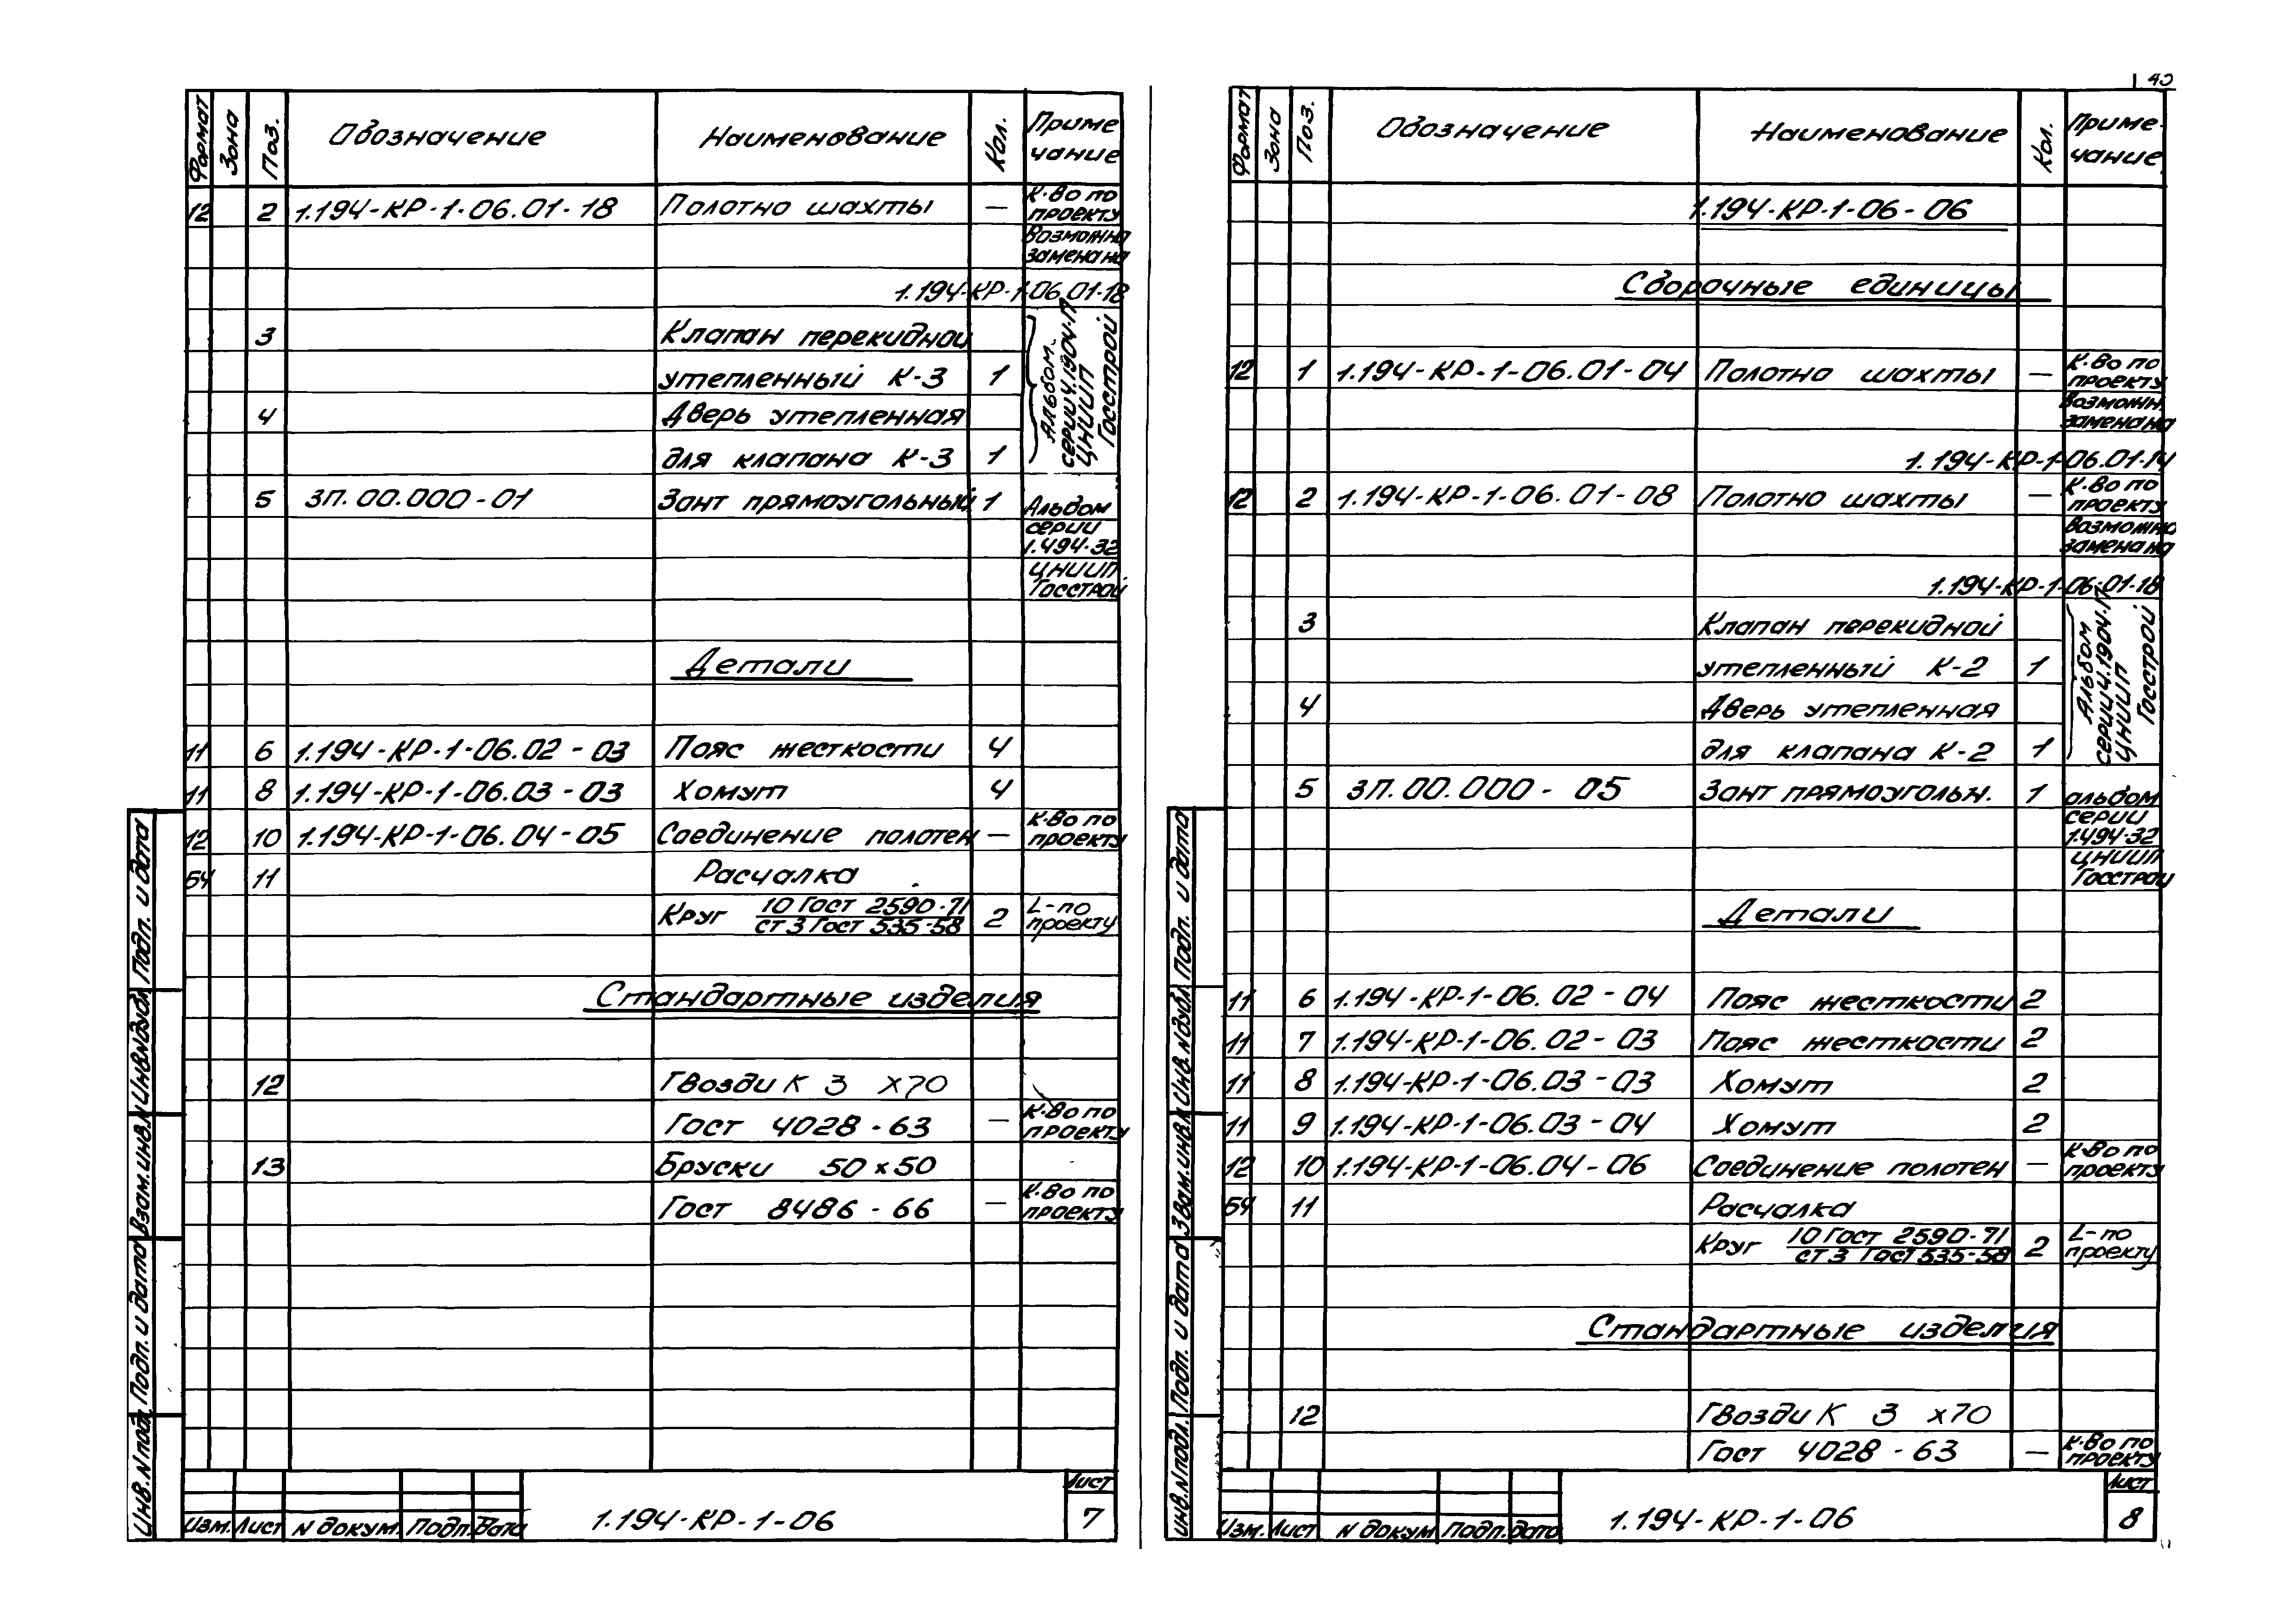 40
Формат
Зона
Поз.
Обозначение
Наименование
Кол.
Приме
чание
12 2 1.194-КР-1-06.01-18 Полотно шахты — К-во по
проекту
Возможна
замена на
1.194-КР-1-06.01-18
3 Клапан перекидной
утепленный К-3 1
4 Дверь утепленная
для клапана К-3 1
Альбом
серии 4.1904-П
ЦНИИП
Госстрой
5 ЗП.00.000-01 Зонт прямоугольный 1 Альбом
серии
1.494-32
ЦНИИП
Госстрой
Детали
11 6 1.194-КР-1-06.02-03 Пояс жесткости 4
11 8 1.194-КР-1-06.03-03 Хомут 4
12 10 1.194-КР-1-06.04-05 Соединение полотен — К-во по
проекту
БЧ 11 Расчалка
Круг 10 Гост 2590-71
ст 3 Гост 535-58 2 L-по
проекту
Стандартные изделия
12 Гвозди К 3 х70
Гост 4028-63 — К-во по
проекту
13 Бруски 50х50
Гост 8486-66 — К-во по
проекту
Инв.N подл. Подп. и дата Взам.инв.N Инв.N дубл. Подп. и дата
Изм. Лист N докум. Подп. Дата
1.194-КР-1-06
Лист
7
Формат
Зона
Поз.
Обозначение
Наименование
Кол.
Приме-
чание
1.194-КР-1-06-06
Сборочные единицы
12 1 1.194-КР-1-06.01-04 Полотно шахты — К-во по
проекту
Возможн.
замена на
1.194-КР-1-06.01-14
12 2 1.194-КР-1-06.01-08 Полотно шахты — К-во по
проекту
Возможно
замена на
1.194-КР-1-06-01-18
3 Клапан перекидной
утепленный К-2 1
4 Дверь утепленная
для клапана К-2 1
Альбом
серии 4.1904-П
ЦНИИП
Госстрой
5 ЗП.00.000-05 Зонт прямоугольн. 1 альбом
серии
1.494-32
ЦНИИП
Госстрой
Детали
11 6 1.194-КР-1-06.02-04 Пояс жесткости 2
11 7 1.194-КР-1-06.02-03 Пояс жесткости 2
11 8 1.194-КР-1-06.03-03 Хомут 2
11 9 1.194-КР-1-06.03-04 Хомут 2
12 10 1.194-КР-1-06.04-06 Соединение полотен — К-во по
проекту
БЧ 11 Расчалка
Круг 10 Гост 2590-71
ст 3 Гост 535-58 2 L-по
проекту
Стандартные изделия
12 Гвозди К 3 х70
Гост 4028-63 — К-во по
проекту
инв.N подл. Подп. и дата Взам.инв.N Инв.N дубл. Подп. и дата
Изм. Лист N докум. Подп. дата
1.194-КР-1-06
Лист
8